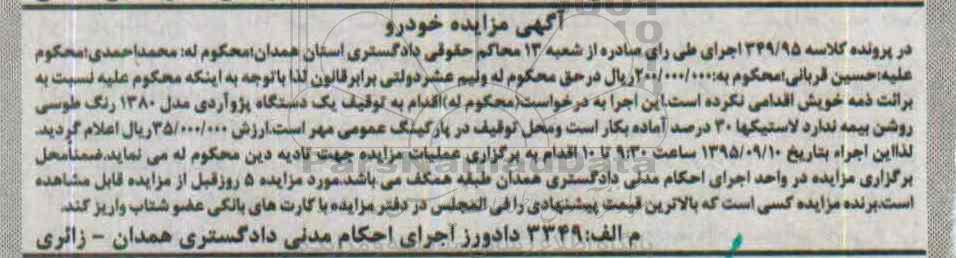 آگهی مزایده خودرو
در پرونده کلاسه ۳۴۹/۹۵ اجرای طی رای صادره از شعبه ۱۳ محاکم حقوقی دادگستری استان همدان؛محکوم له: محمداحمدی؛محکوم
علیه:حسین قربانی؛محکوم به:۲۰۰/۰۰۰/۰۰۰ریال درحق محکوم له ونیم عشردولتی برابرقانون لذا باتوجه به اینکه محکوم علیه نسبت به
برائت ذمه خویش اقدامی نکرده است.این اجرا به درخواست(محکوم له)اقدام به توقیف یک دستگاه پژوآردی مدل ۱۳۸۰ رنگ طوسی
روشن بیمه ندارد لاستیکها ۳۰ درصد آماده بکار است ومحل توقیف در پارکینگ عمومی مهر است.ارزش ۳۵/۰۰۰/۰۰۰ریال اعلام گردید.
لذااین اجراء بتاریخ ۱۳۹۵/۰۹/۱۰ ساعت ۹:۳۰ تا ۱۰ اقدام به برگزاری عملیات مزایده جهت تادیه دین محکوم له می نماید.ضمنامحل
برگزاری مزایده در واحد اجرای احکام مدنی دادگستری همدان طبقه همکف می باشد.مورد مزایده ۵ روزقبل از مزایده قابل مشاهده
است.برنده مزایده کسی است که بالاترین قیمت پیشنهادی را فی المجلس در دفتر مزایده با کارت های بانکی عضو شتاب واریز کند.
م الف:۳۳۴۹ دادورز آجرای احکام مدنی دادگستری همدان - زائری
ParsNamadData